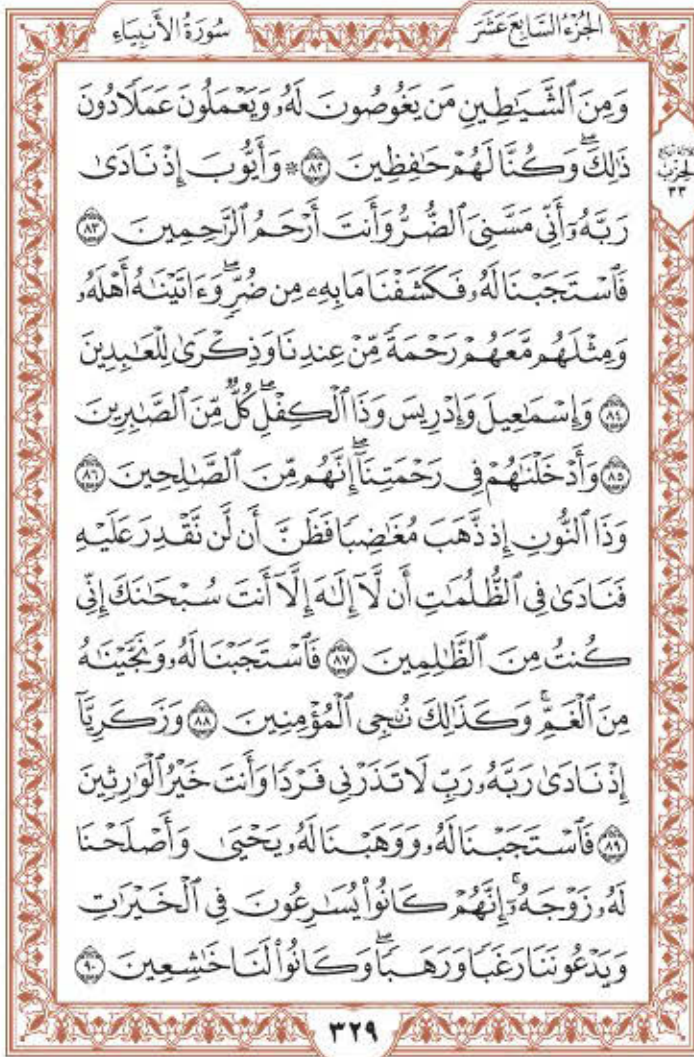 الجُزْءُ السَّابِعَ عَشَرَ
سُورَةُ الأَنبِيَاءِ
وَمِنَ ٱلشَّيَـٰطِينِ مَن يَغُوصُونَ لَهُۥ وَيَعْمَلُونَ عَمَلًا دُونَ
ذَٰلِكَۖ وَكُنَّا لَهُمْ حَـٰفِظِينَ ٨٢ ۞ وَأَيُّوبَ إِذْ نَادَىٰ
رَبَّهُۥٓ أَنِّى مَسَّنِىَ ٱلضُّرُّ وَأَنتَ أَرْحَمُ ٱلرَّٰحِمِينَ ٨٣
فَٱسْتَجَبْنَا لَهُۥ فَكَشَفْنَا مَا بِهِۦ مِن ضُرٍّۖ وَءَاتَيْنَـٰهُ أَهْلَهُۥ
وَمِثْلَهُم مَّعَهُمْ رَحْمَةً مِّنْ عِندِنَا وَذِكْرَىٰ لِلْعَـٰبِدِينَ
٨٤ وَإِسْمَـٰعِيلَ وَإِدْرِيسَ وَذَا ٱلْكِفْلِۖ كُلٌّ مِّنَ ٱلصَّـٰبِرِينَ
٨٥ وَأَدْخَلْنَـٰهُمْ فِى رَحْمَتِنَآۖ إِنَّهُم مِّنَ ٱلصَّـٰلِحِينَ ٨٦
وَذَا ٱلنُّونِ إِذ ذَّهَبَ مُغَـٰضِبًا فَظَنَّ أَن لَّن نَّقْدِرَ عَلَيْهِ
فَنَادَىٰ فِى ٱلظُّلُمَـٰتِ أَن لَّآ إِلَـٰهَ إِلَّآ أَنتَ سُبْحَـٰنَكَ إِنِّى
كُنتُ مِنَ ٱلظَّـٰلِمِينَ ٨٧ فَٱسْتَجَبْنَا لَهُۥ وَنَجَّيْنَـٰهُ
مِنَ ٱلْغَمِّۚ وَكَذَٰلِكَ نُـۨجِى ٱلْمُؤْمِنِينَ ٨٨ وَزَكَرِيَّآ
إِذْ نَادَىٰ رَبَّهُۥ رَبِّ لَا تَذَرْنِى فَرْدًا وَأَنتَ خَيْرُ ٱلْوَٰرِثِينَ
٨٩ فَٱسْتَجَبْنَا لَهُۥ وَوَهَبْنَا لَهُۥ يَحْيَىٰ وَأَصْلَحْنَا
لَهُۥ زَوْجَهُۥٓۚ إِنَّهُمْ كَانُوا۟ يُسَـٰرِعُونَ فِى ٱلْخَيْرَٰتِ
وَيَدْعُونَنَا رَغَبًا وَرَهَبًاۖ وَكَانُوا۟ لَنَا خَـٰشِعِينَ ٩٠
الحِزْب
٣٣
٣٢٩